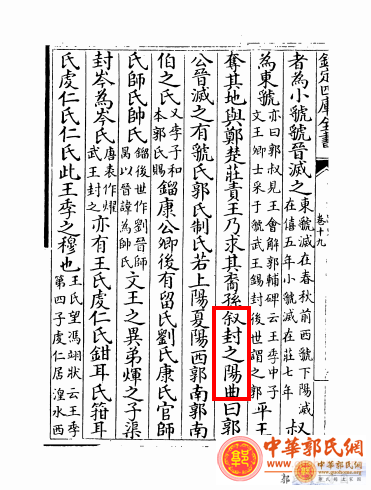 欽定四庫全書
卷十九
者為小虢虢晉滅之東虢滅在春秋前西虢下陽滅在僖五年小虢滅在莊七年叔
為東虢亦曰郭叔見王會解郭輔碑云王季中子文王卿士采于虢武王錫封後世謂之郭平王
奪其地與鄭楚莊責王乃求其裔孫叙封之陽曲曰郭
公晉滅之有虢氏郭氏制氏若上陽夏陽西郭南郭南
伯之氏又季子和本郭氏賜鎦康公卿後有留氏劉氏康氏官師
氏師氏帥氏鎦後世作劉晉師昺以晉諱為帥氏文王之異弟煇之子渠
封岑為岑氏唐表作燿武王封之亦有王氏虔仁氏鉗耳氏箝耳
氏虔仁氏仁氏此王季之穆也王氏望馮翊狀云王季第四子虔仁居湟水西
中華郭氏網
中華郭氏網